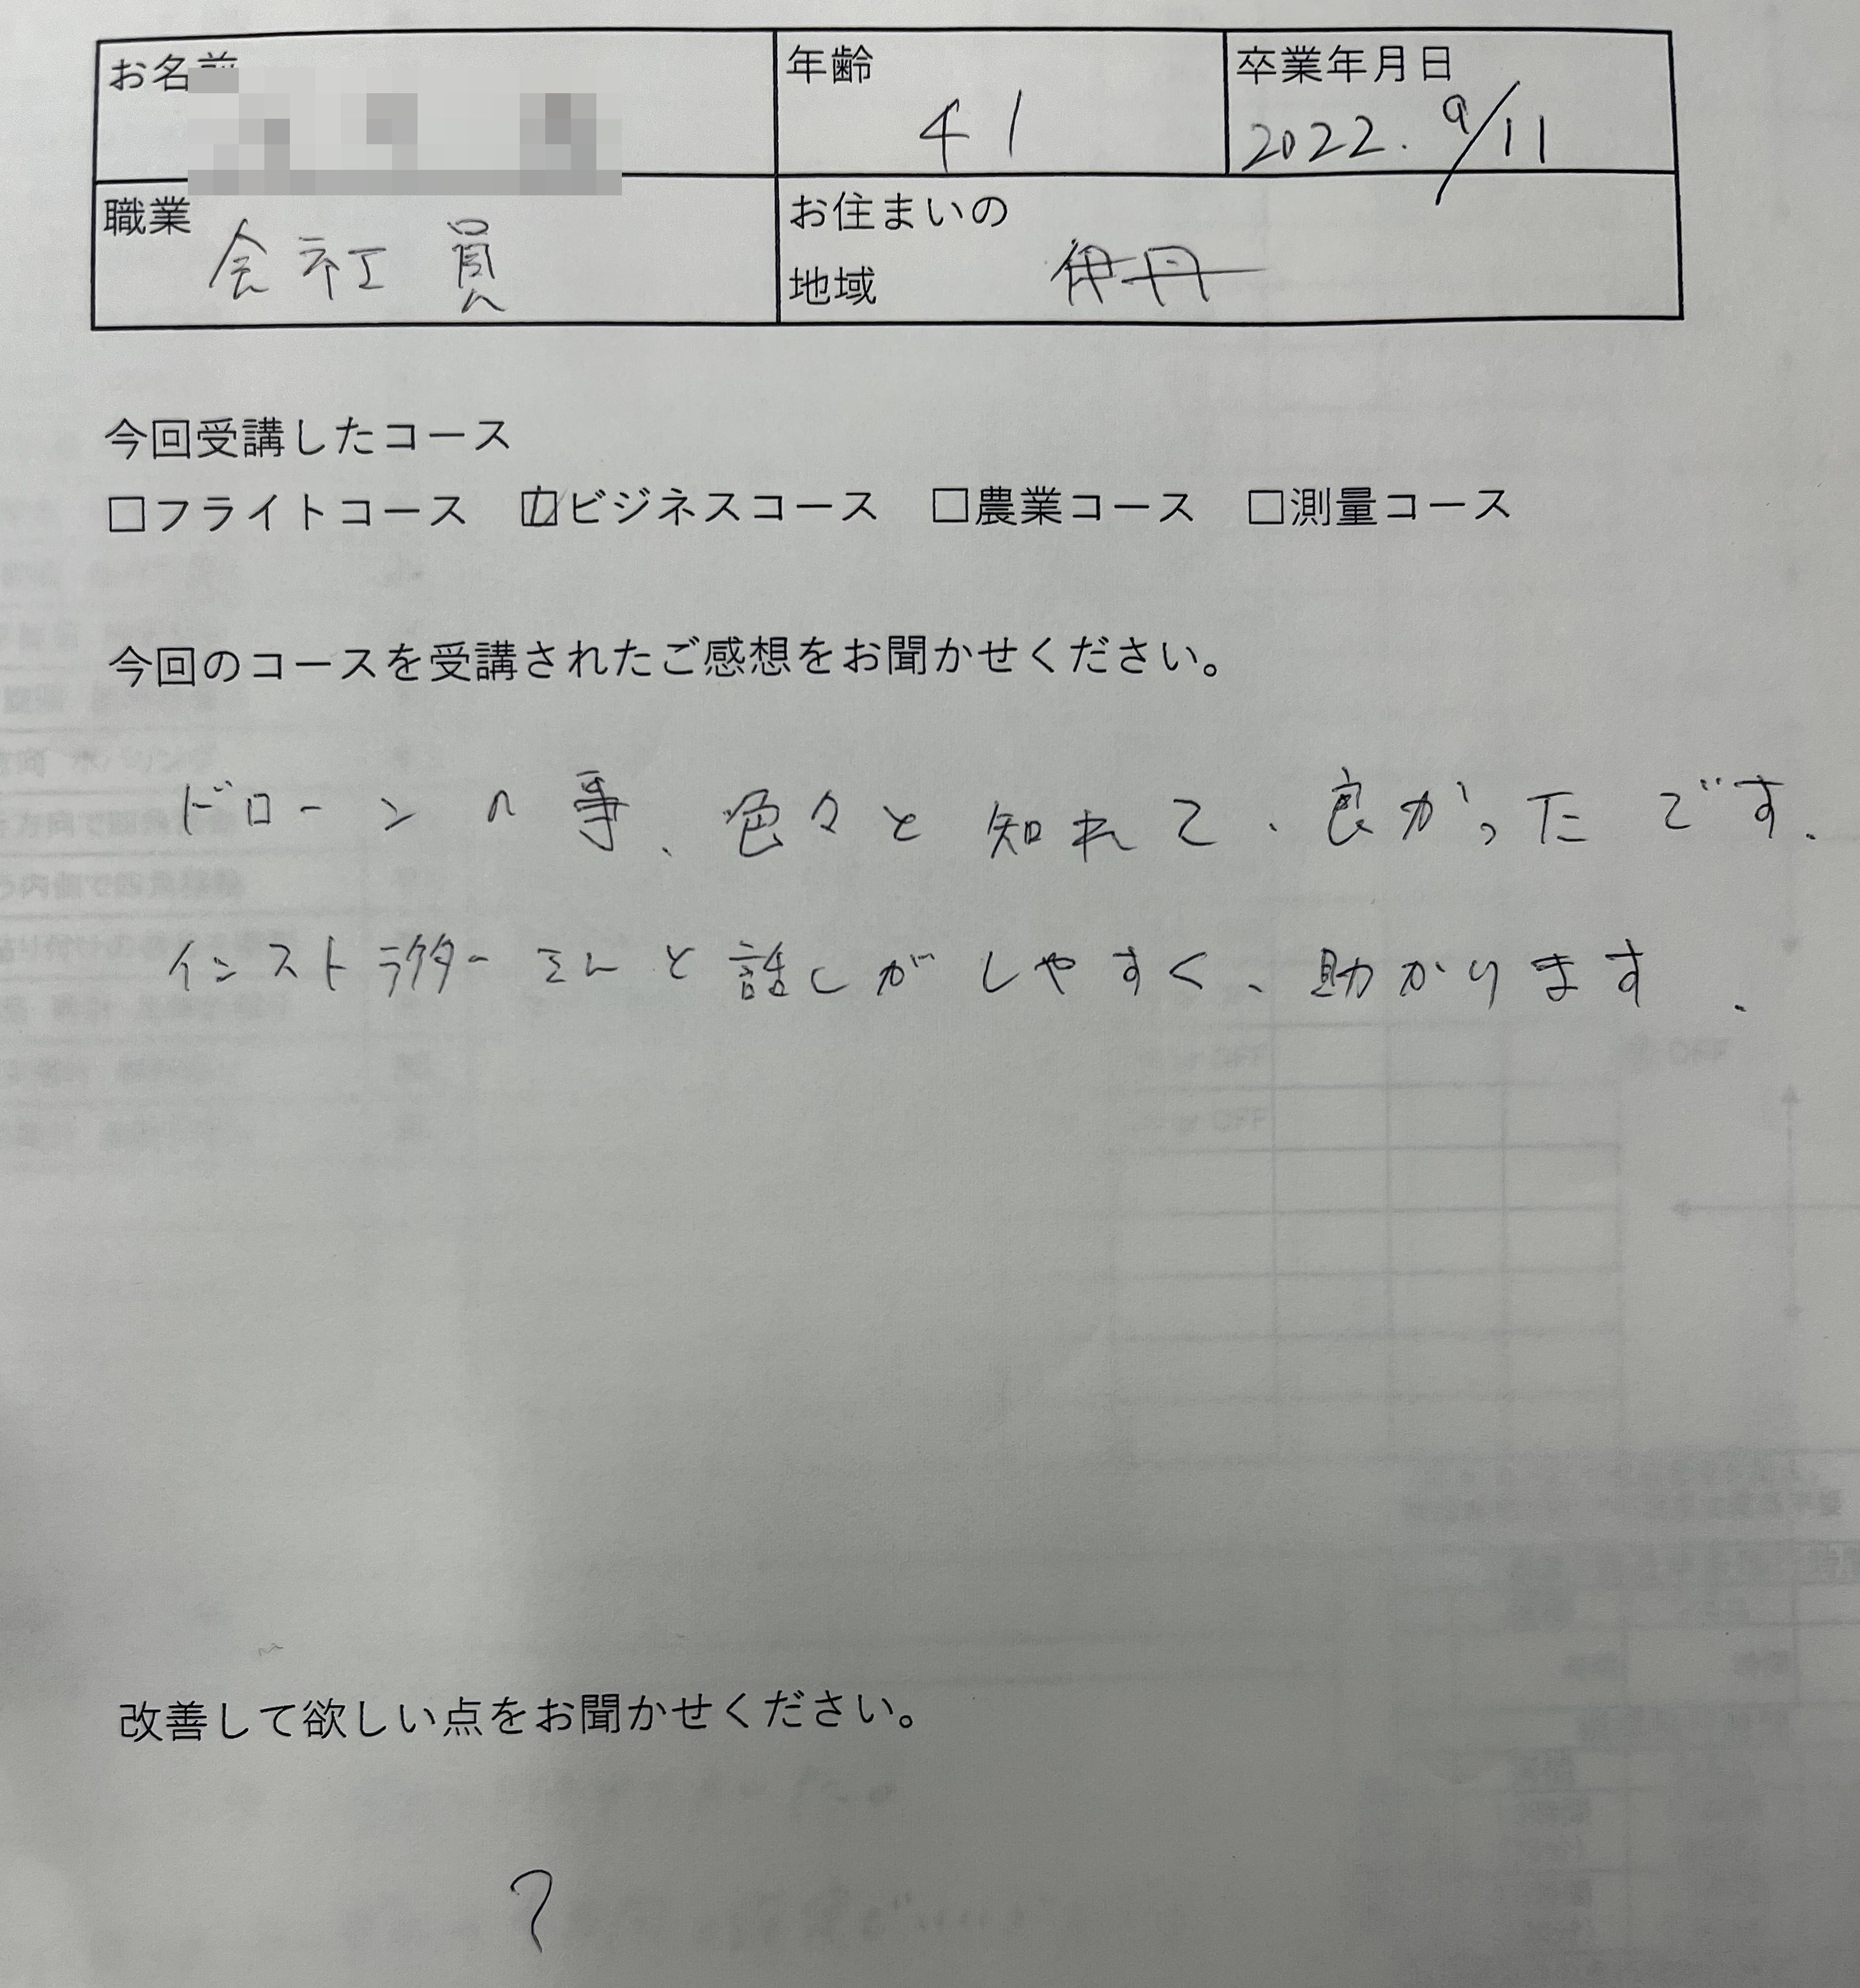 お名前
年齢
41
卒業年月日
2022. 9/11
職業
会社員
お住まいの
地域
伊丹
今回受講したコース
□フライトコース ☑ビジネスコース □農業コース □測量コース
今回のコースを受講されたご感想をお聞かせください。
ドローンの事、色々と知れて、良かったです.
インストラクターさんと話しがしやすく、助かります.
改善して欲しい点をお聞かせください。
?